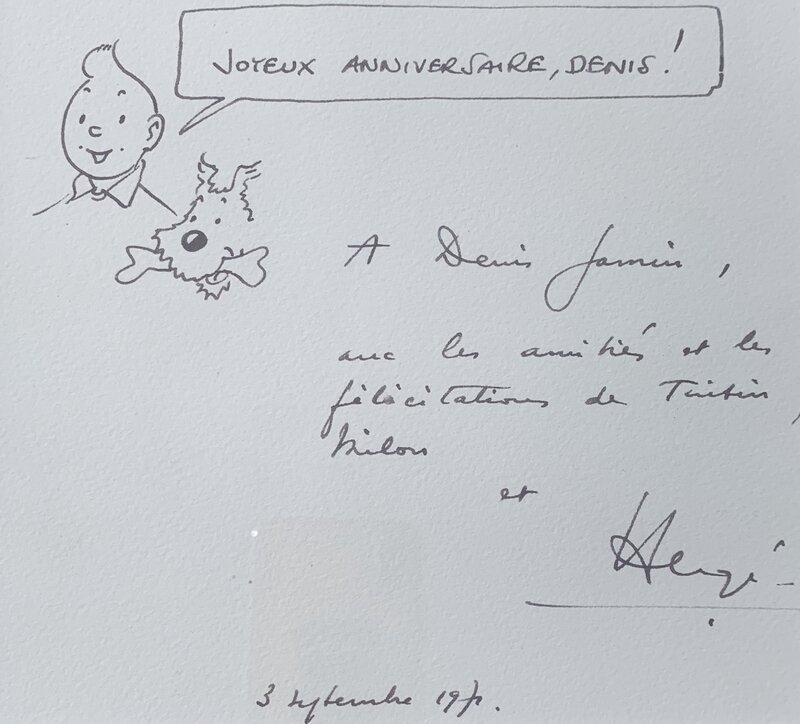 JOYEUX ANNIVERSAIRE, DENIS!
A Denis Jamin,
avec les amitiés et les
félicitations de Tintin,
Milou
et
Hergé
3 septembre